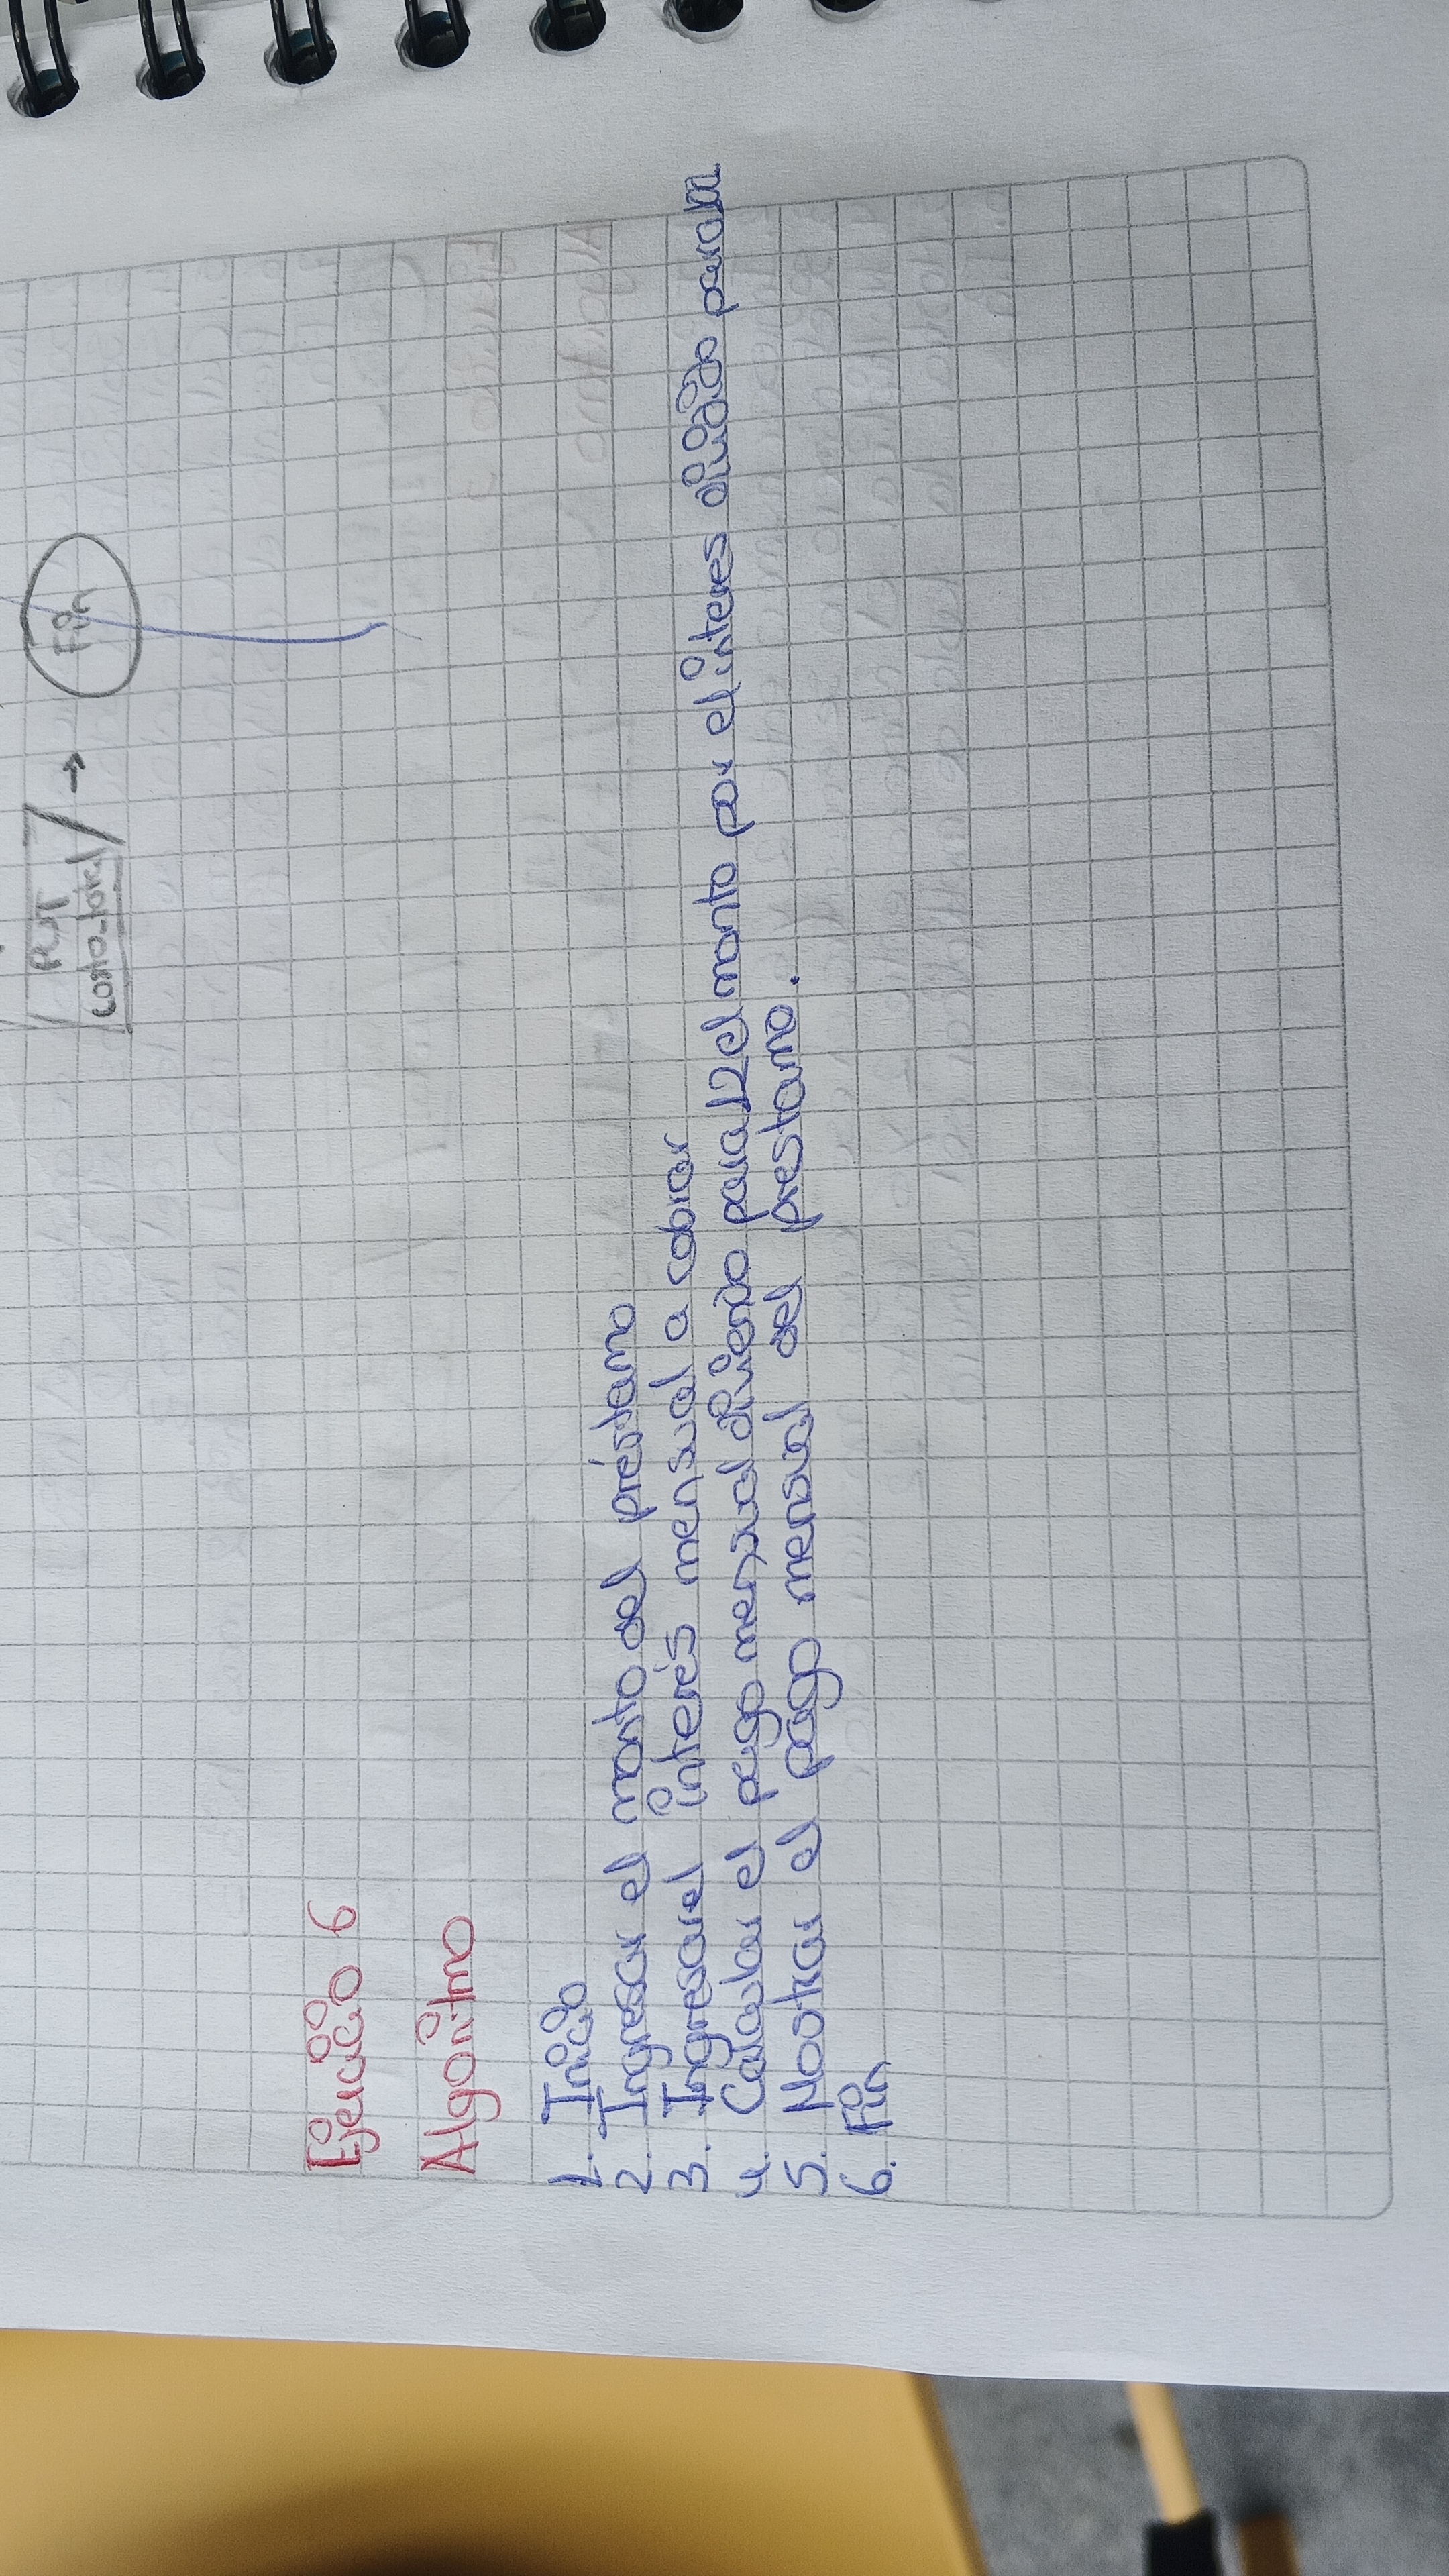 PUT
costo_total
→
Fin
Ejercicio 6
Algoritmo
1. Inicio
2. Ingresar el monto del préstamo
3. Ingresar el interés mensual a cobrar
4. Calcular el pago mensual el monto por el interes
5. Mostrar el pago mensual del prestamo.
6. Fin